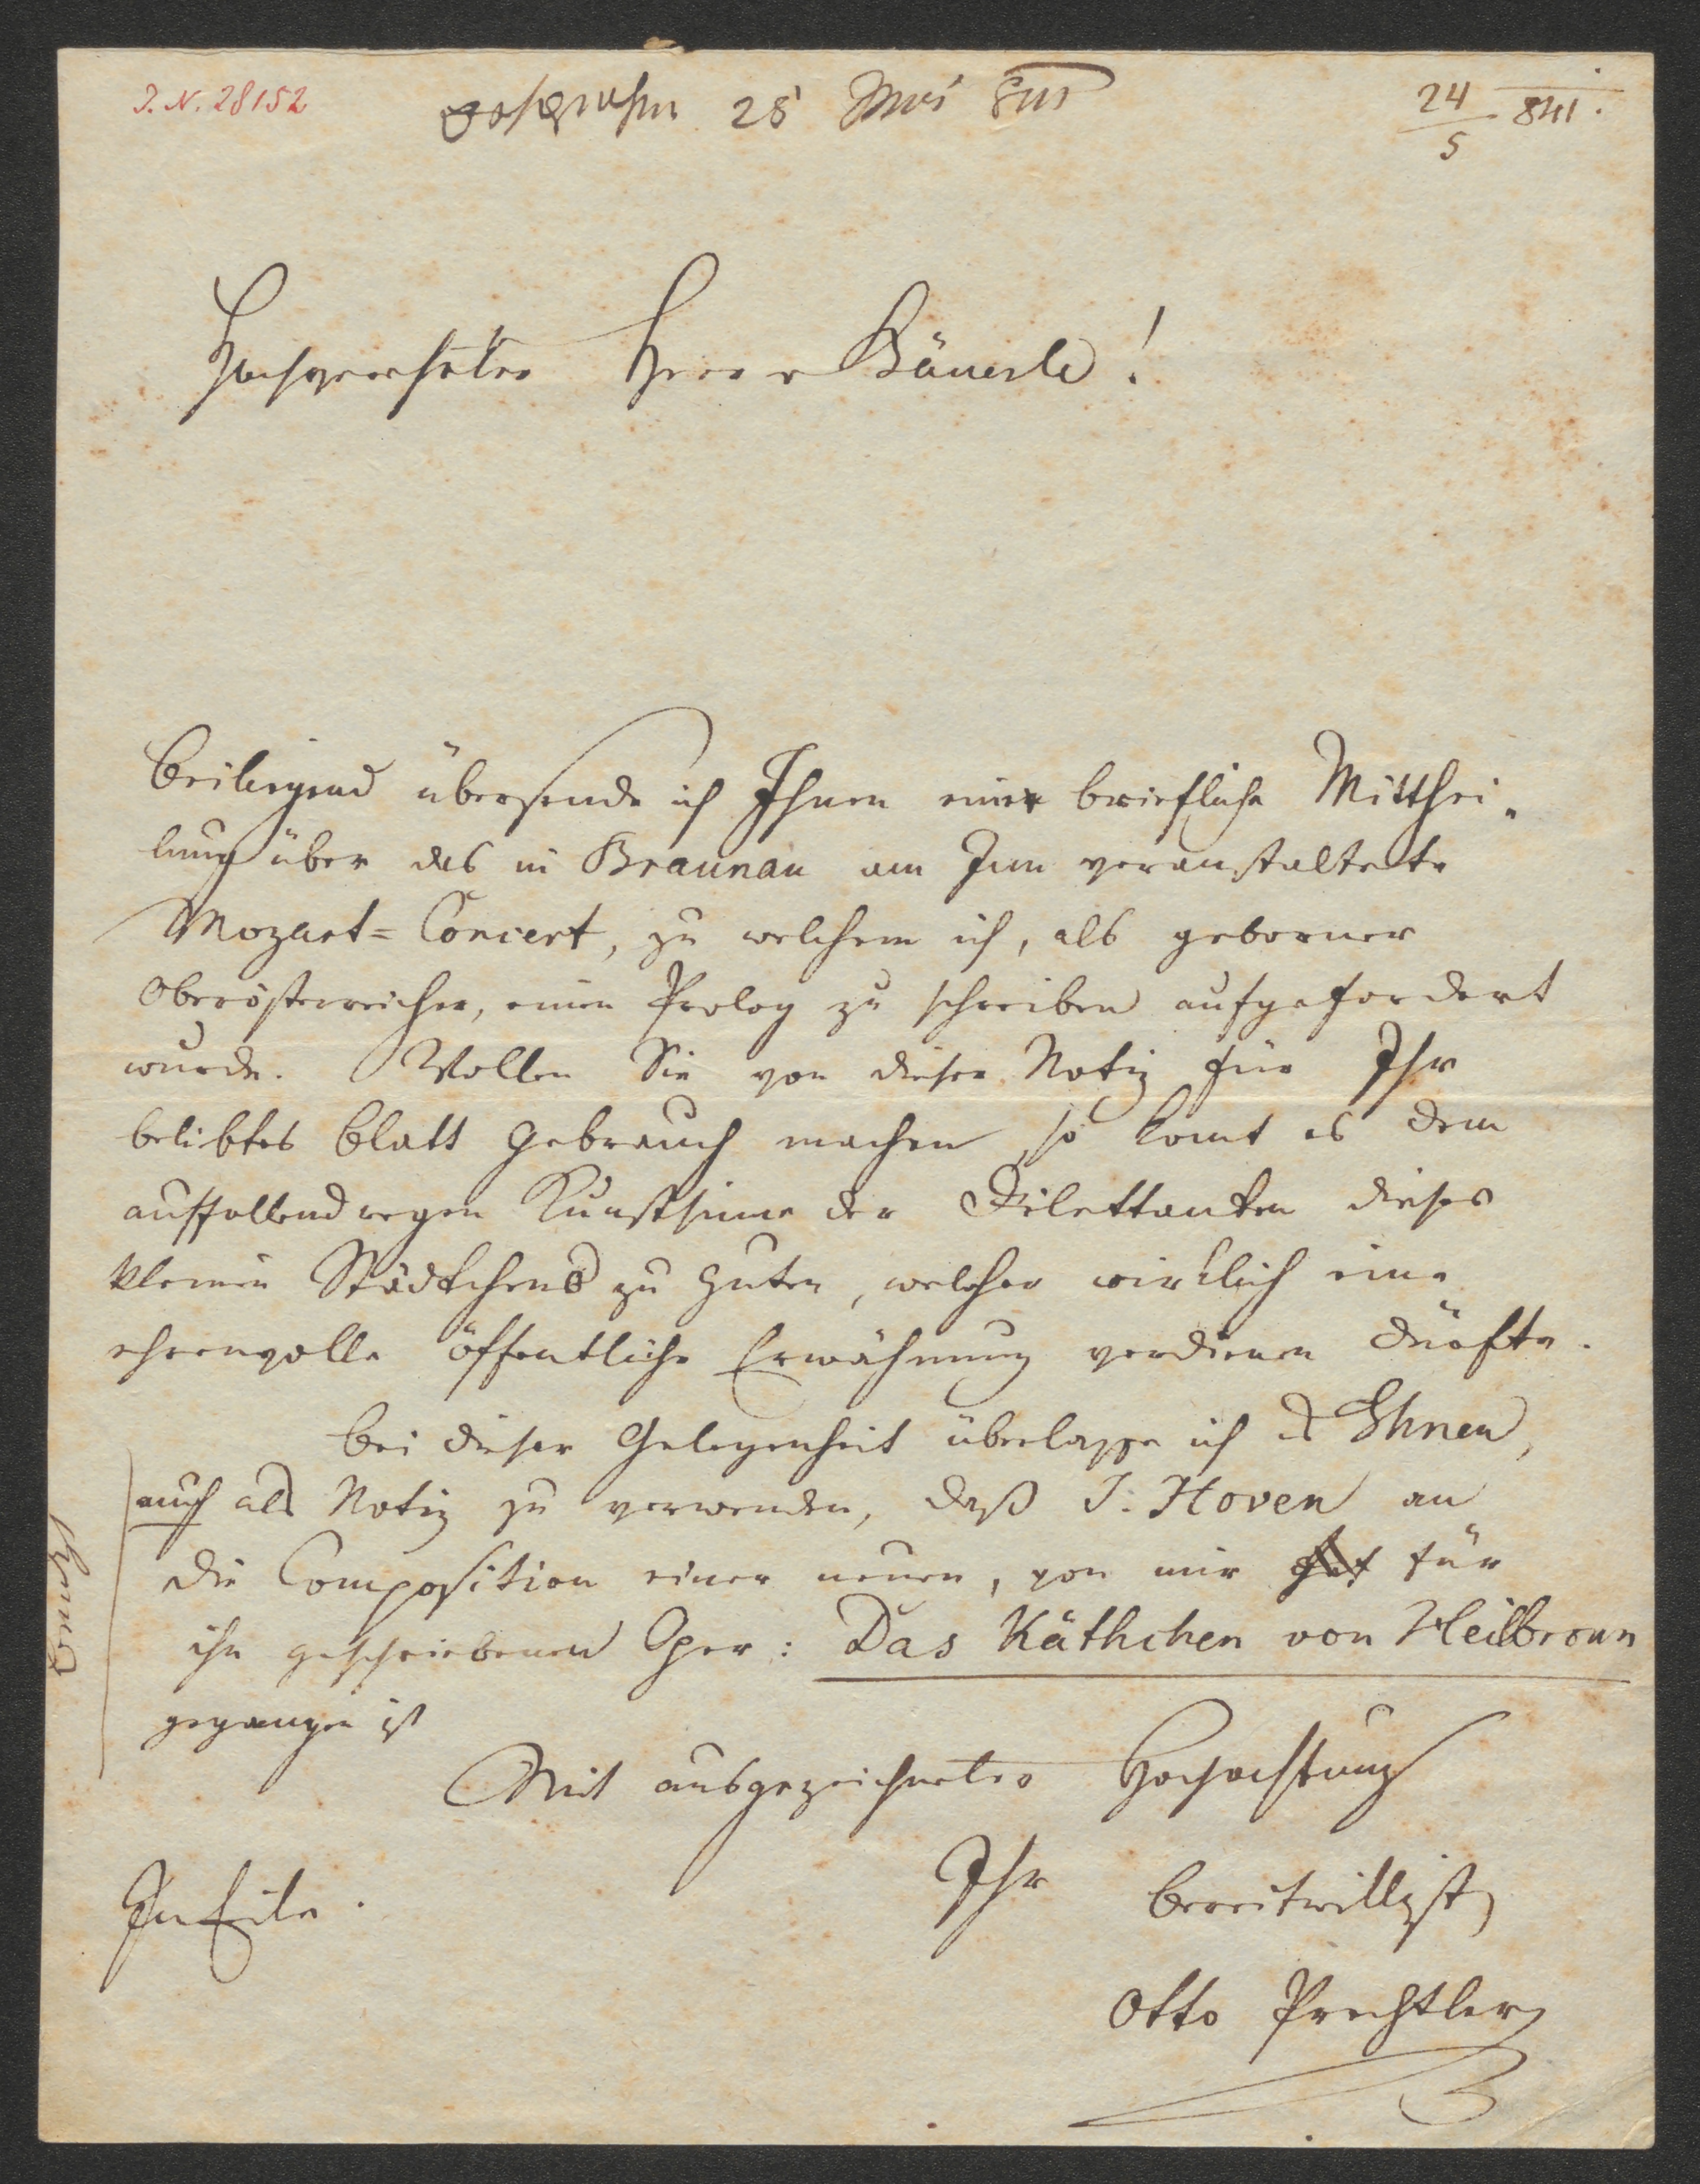 J. N. 28152
25 Mai 841
24/5 841.
Hochverehrter Herr Bäuerle!
Beiliegend übersende ich Ihnen eine briefliche Mitthei-
lung über das in Braunau am Inn veranstaltete
Mozart=Concert, zu welchem ich, als geborner
Oberösterreicher, einen Prolog zu schreiben aufgefordert
wurde. Wollen Sie von dieser Notiz für Ihr
beliebtes Blatt Gebrauch machen, so komt es dem
auffallend regen Kunstsinne der Dilettanten dieses
kleinen Städtchens zu Guten, welcher wirklich eine
ehrenvolle öffentliche Erwähnung verdienen dürfte.
Bei dieser Gelegenheit überlasse ich es Ihnen,
auch als Notiz zu verwenden, daß J. Hoven an
die Composition einer neuen, von mir für
ihn geschriebenen Oper: Das Käthchen von Heilbronn
gegangen ist
Mit ausgezeichneter Hochachtung
Ihr bereitwilligst
In Eile.
Otto Prechtler